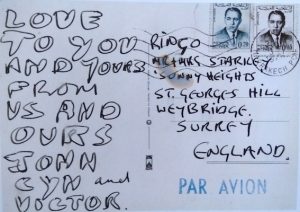 LOVE
TO YOU
AND YOURS
FROM
US AND
OURS
JOHN
CYN and
VICTOR.
RINGO
MR + MRS STARKEY
'SUNNY HEIGHTS
ST. GEORGES HILL
WEYBRIDGE.
SURREY
ENGLAND.
PAR AVION